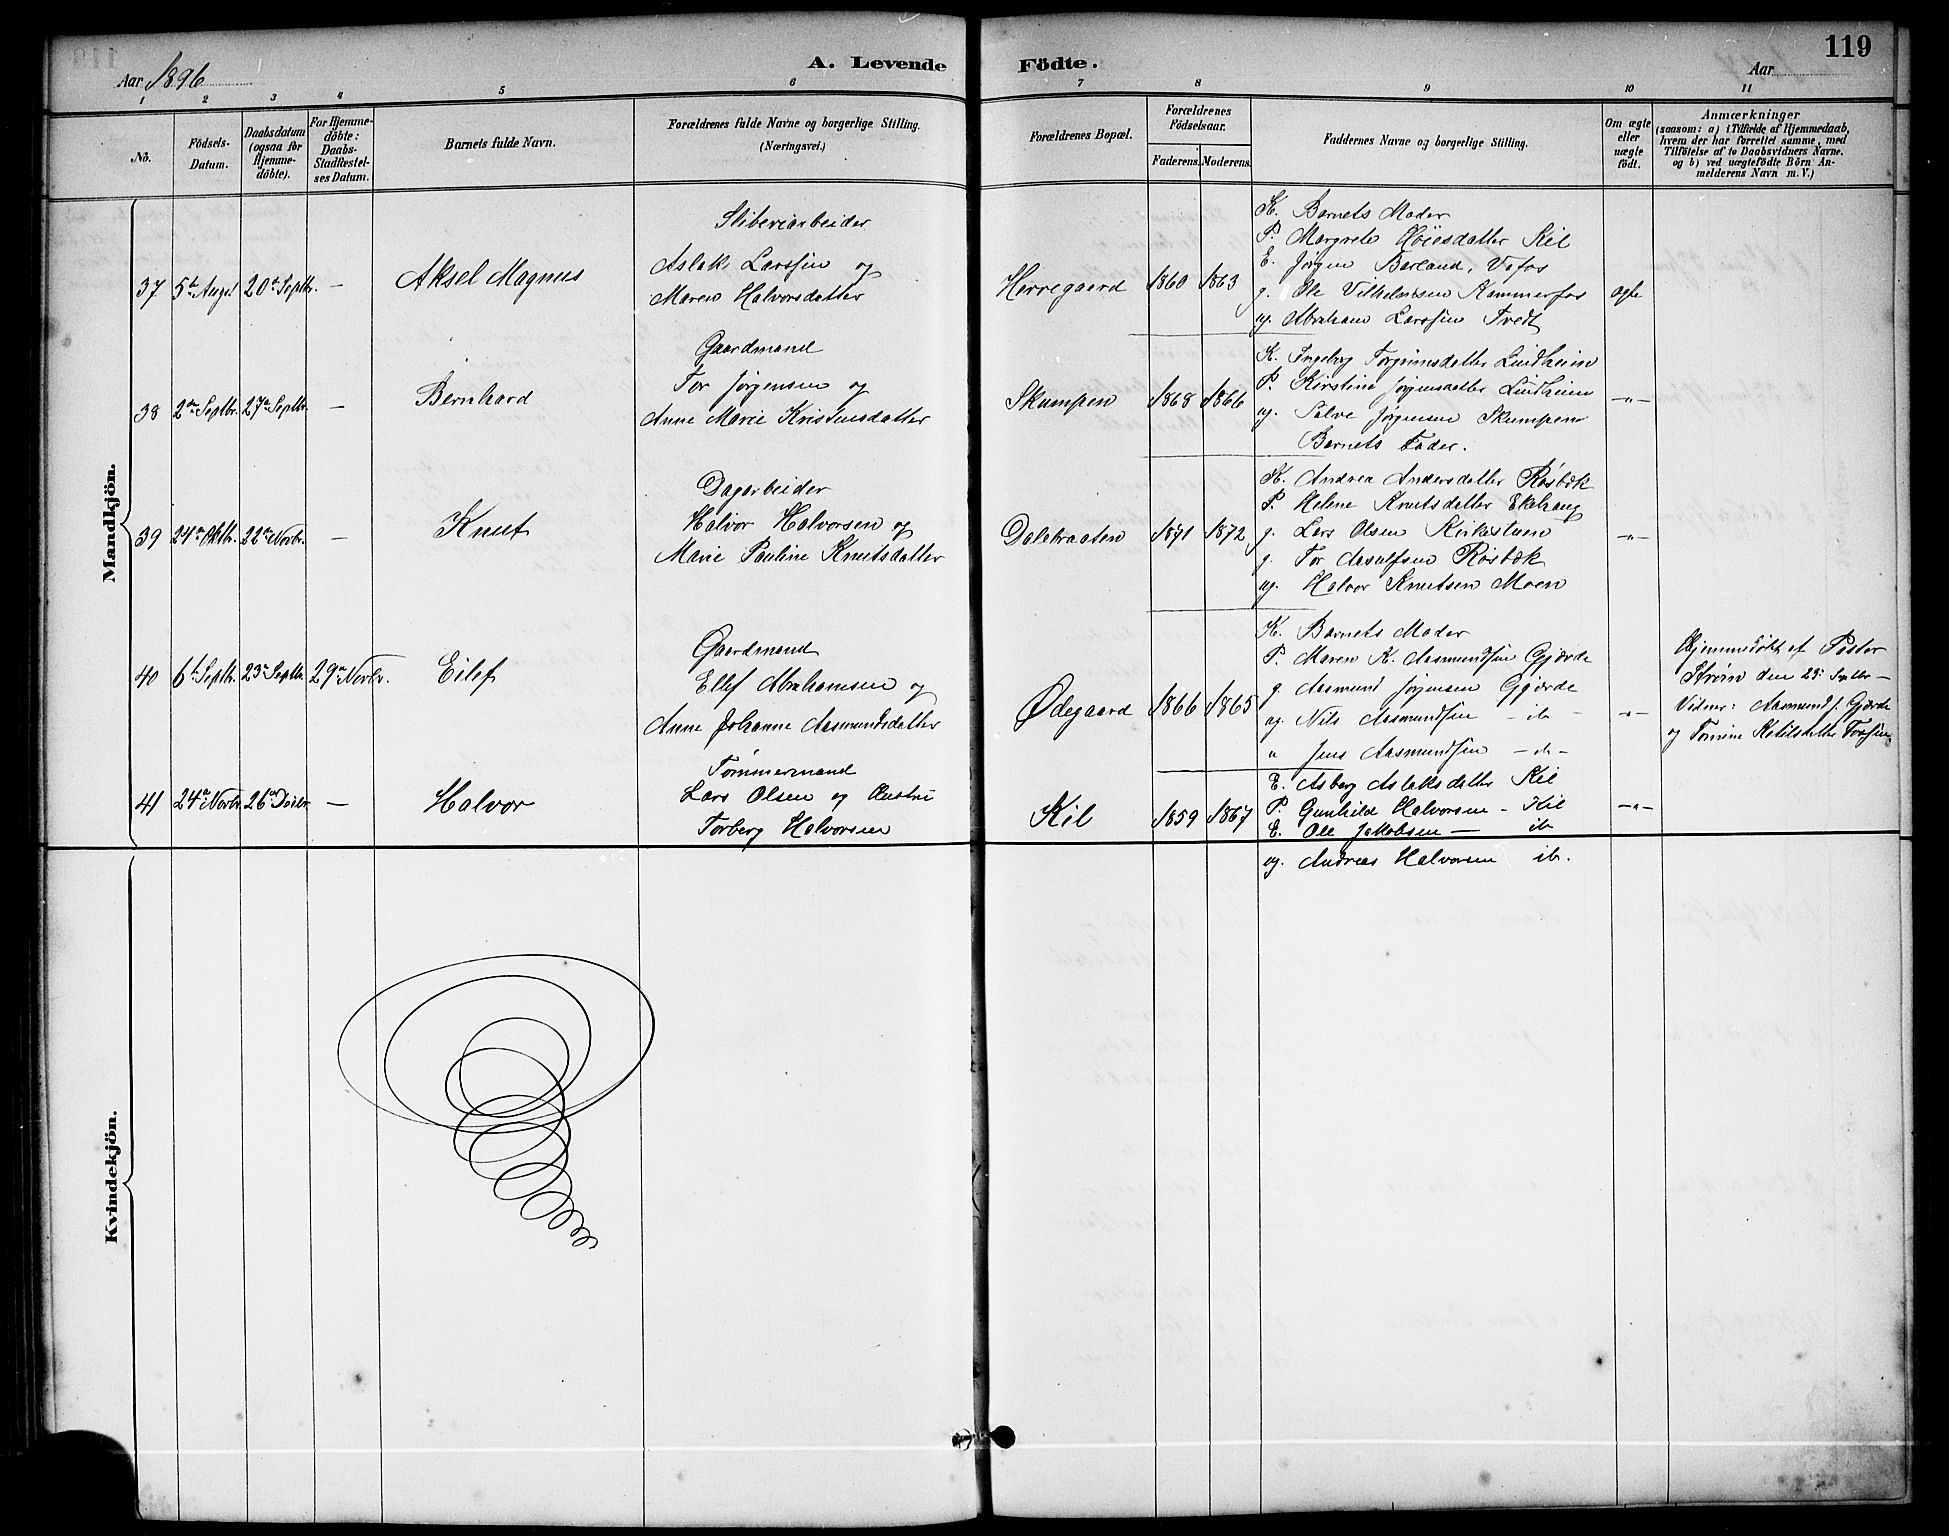 119
Aar 1896 A. Levende Födte. Aar
1 2 3 4 5 6 7 8 9 10 11
No.
Födsels-Datum.
Daabsdatum (ogsaa for Hjemme-döbte).
For Hjemme-döbte: Daabs-Stadfæstel-ses Datum.
Barnets fulde Navn.
Forældrenes fulde Navne og borgerlige Stilling. (Næringsvei.)
Forældrenes Bopæl.
Forældrenes Födselsaar.
Faderens. Moderens.
Faddernes Navne og borgerlige Stilling.
Om ægte eller uægte födt.
Anmærkninger
(saasom: a) i Tilfælde af Hjemmedaab,
hvem der har forrettet samme, med
Tilföielse af to Daabsvidners Navne,
og b) ved uægtefödte Börn An-
melderens Navn m. V.)
Mandkjön.
37 5te Augst 20de Septbr. — Aksel Magnus
Sliberiarbeider
Aslak Larssen og
Maren Halvorsdatter
Herregaard 1860 1863
K. Barnets Moder
P. Margrete Høiesdatter Kil
E. Jørgen Barland, Vafos
g. Ole Vilhelmsen Kammerfos
ug. Abraham Larssen Tvedt
ægte
38 2den Septbr. 27de Septbr. — Bernhard
Gaardmand
Tor Jørgensen og
Anne Marie Kristensdatter
Skumpen 1868 1866
K. Ingeborg Torgrimsdatter Lindheim
P. Kirstine Jørgensdatter Lindheim
ug. Salve Jørgensen Skumpen
Barnets Fader.
—"—
39 24de Oktbr. 22de Novbr. — Knut
Dagarbeider
Halvor Halvorsen og
Marie Pauline Knutsdatter
Dalsbraaten 1871 1872
K. Andrea Andersdatter Røsbæk
P. Helene Knutsdatter Ekehaug
g. Lars Olsen Kirkestuen
g. Tor Aasulfsen Røsbæk
ug. Halvor Knutsen Moen
—"—
40 6te Septbr. 23de Septbr. 29de Novbr. Eilef
Gaardmand
Ellef Abrahamsen og
Anne Johanne Aasmundsdatter
Ødegaard 1866 1865
K. Barnets Moder
P. Maren K. Aasmundsen Gjærde
g. Aasmund Jørgensen Gjærde
ug. Nils Aasmundsen — ib —
" Jens Aasmundsen — ib —
—"—
Hjemmedøbt af Pastor
Strøm den 23de Septbr —
Vidner: Aasmund J. Gjærde
og Tomine Ketilsdatter
41 24de Novbr. 26de Decbr. — Halvor
Tømmermand
Lars Olsen og Hustru
Torberg Halvorsen
Kil 1859 1867
E. Asberg Aslaksdatter Kil
P. Gunhild Halvorsen — Kil
E. Ole Jakobsen — ib
ug. Andreas Halvorsen ib.
—"—
Kvindekjön.